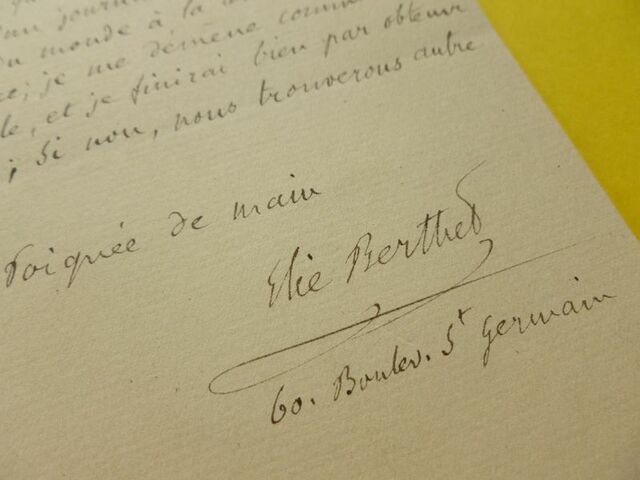 un journal
du monde à la
je me démène comme
et je finirai bien par obtenir
; si non, nous trouverons autre
Poignée de main
Elie Berthet
60. Boulev. St Germain